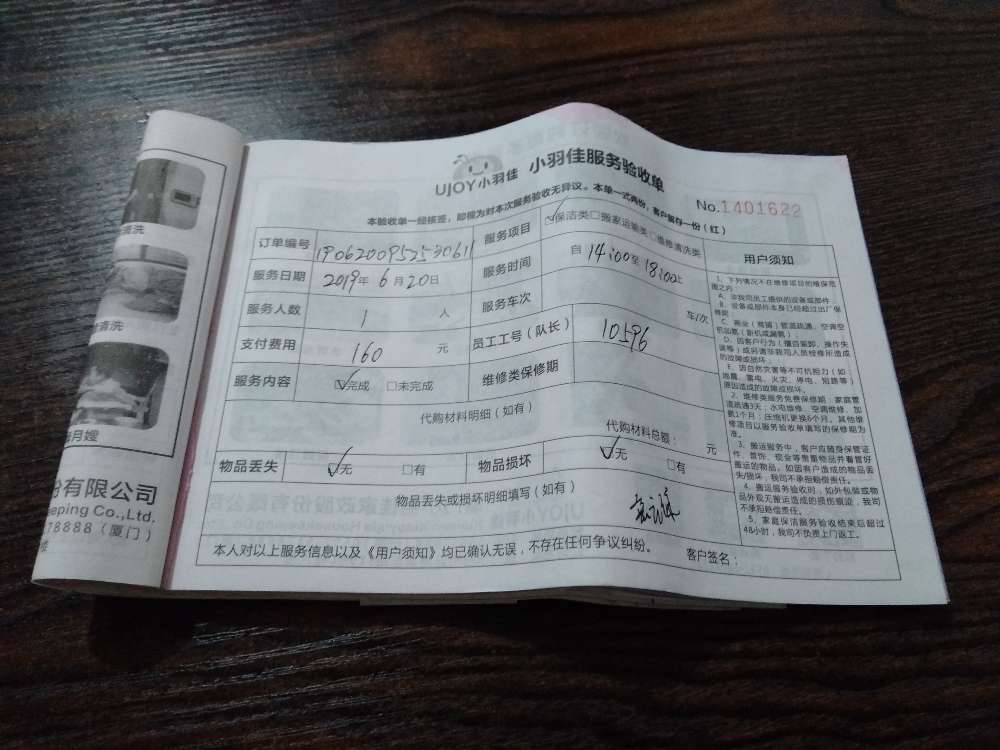 UJOY小羽佳 小羽佳服务验收单
No.1401622
本验收单一经核签，即视为对本次服务验收无异议。本单一式两份，客户留存一份（红）
订单编号 190620095253061 服务项目 保洁类 搬家运输类 维修清洗类
服务日期 2019年6月20日 服务时间 自14:00至18:00止
服务人数 1 人 服务车次 车/次
支付费用 160 元 员工工号（队长） 10596
服务内容 完成 未完成 维修类保修期
代购材料明细（如有）
代购材料总额： 元
物品丢失 无 有 物品损坏 无 有
物品丢失或损坏明细填写（如有）
本人对以上服务信息以及《用户须知》均已确认无误，不存在任何争议纠纷。 客户签名：
用户须知
1、下列情况不在维修项目的维保范
围之内
A、非我司员工提供的设备或部件
B、设备或部件本身已经超过出厂保
修期
C、商业（商铺）管道疏通、空调空
机加氨（新机或漏氨）
D、因客户行为（擅自装卸、操作失
误等）或另请非我司人员检修所造成
的故障或损坏
E、因自然灾害等不可抗担力（如：
地震、雷电、火灾、停电、短路等）
原因造成的故障或损坏。
2、维修类服务免费保修期：家庭管
道疏通3天；水电维修、空调维修、加
氨1个月；压缩机更换6个月。其他维
修项目以服务验收单填写的保修期为
准。
3、搬运服务中，客户应随身保管证
件、首饰、现金等贵重物品并看管好
搬运的物品。如因客户造成的物品丢
失/损坏，我司不承担赔偿责任。
4、搬运服务验收时，如外包装或物
品外观无搬运造成的损伤痕迹，我司
不承担赔偿责任。
5、家庭保洁服务验收结束后超过
48小时，我司不负责上门返工。
清洗
清洗
月嫂
份有限公司
eping Co.,Ltd.
78888（厦门）